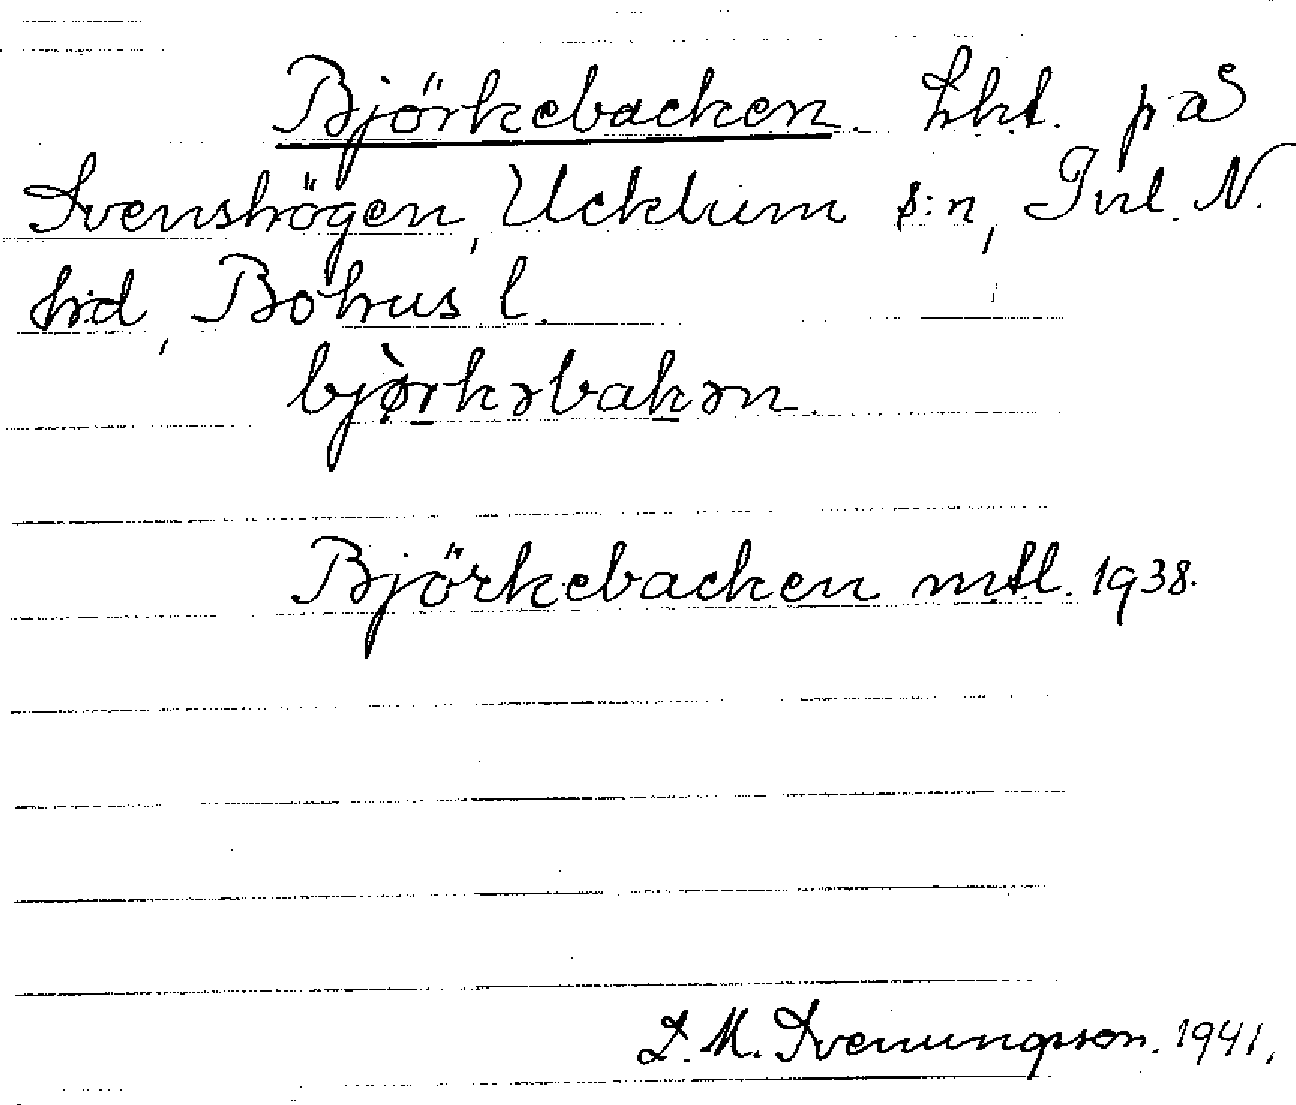 Björkebacken. Lht. på
Svenshögen, Ucklum s:n, Inl. N.
hd, Bohus l.
bjø̀rkəbakən.
Björkebacken mtl. 1938.
D. M. Svenungsson. 1941.